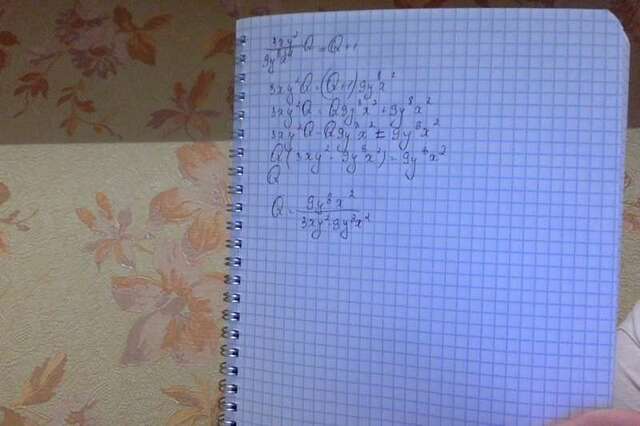 3xy²/9y⁸x² Q = Q+1
3xy²Q = (Q+1)9y⁸x²
3xy²Q = Q9y⁸x² + 9y⁸x²
3xy²Q - Q9y⁸x² = 9y⁸x²
Q(3xy² - 9y⁸x²) = 9y⁸x²
Q
Q = 9y⁸x²/3xy²-9y⁸x²